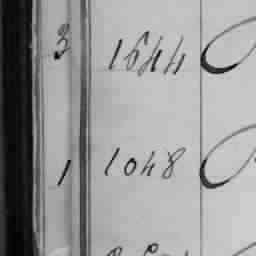 3 1644
1 1048